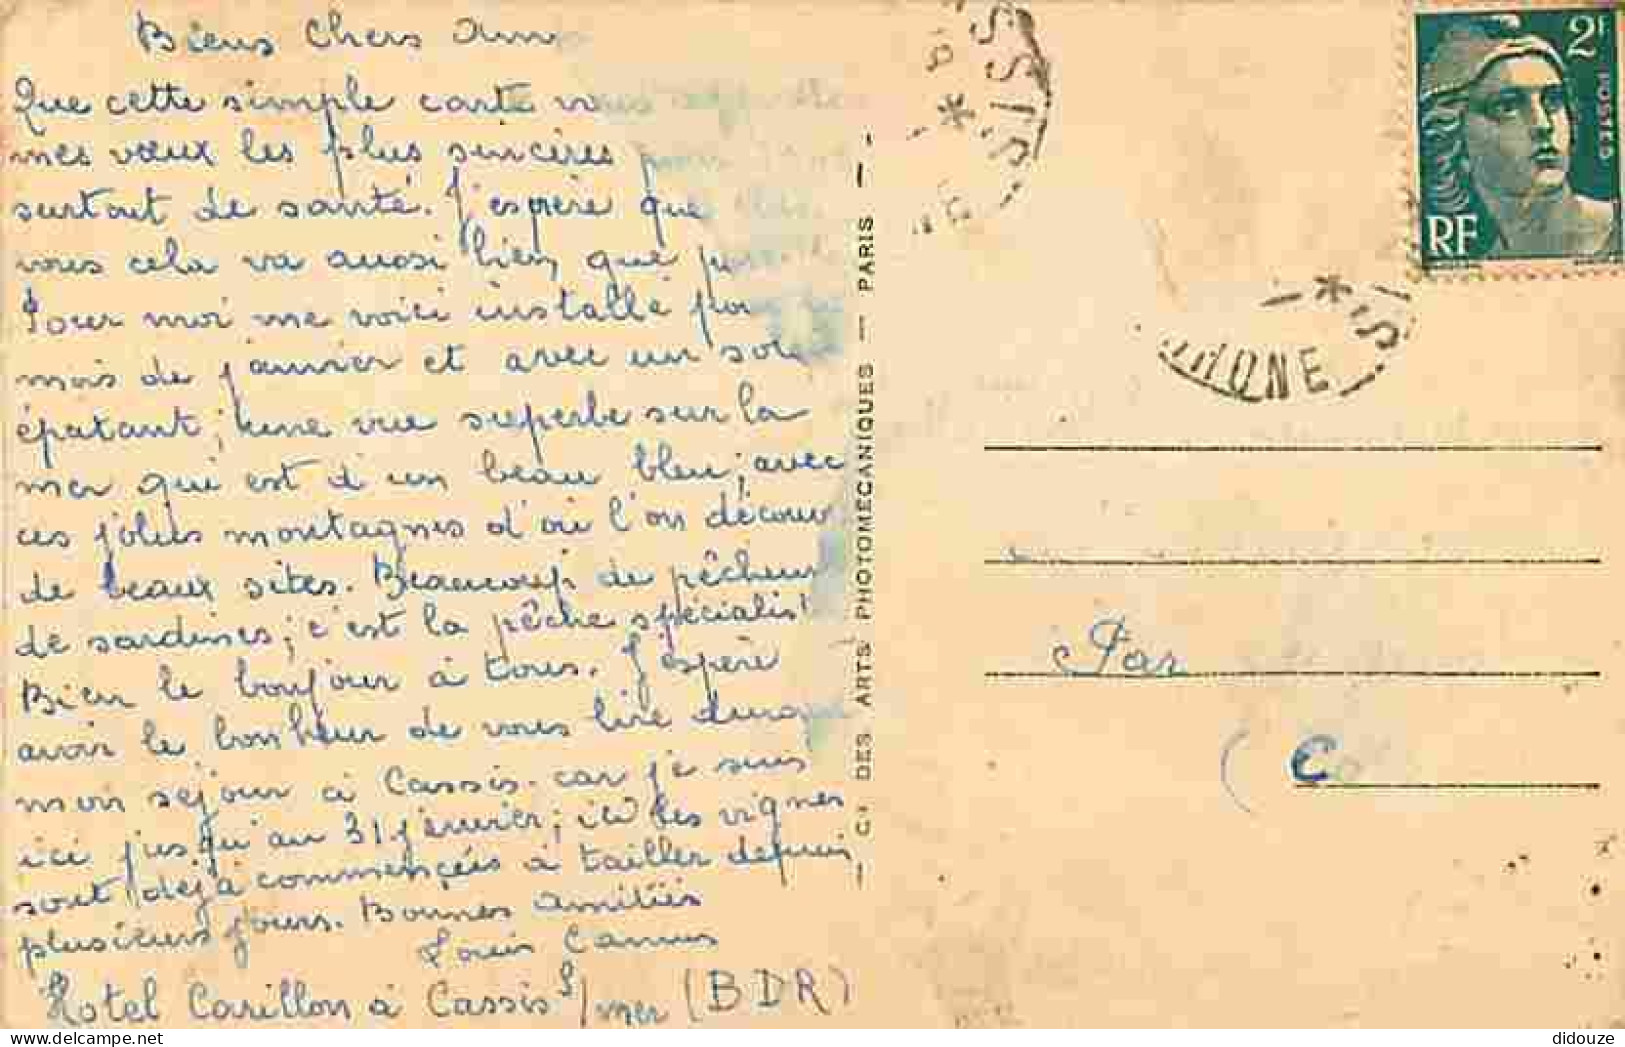 Biens Chers Am
Que cette simple carte vous
mes vœux les plus sincères p
surtout de santé. J'espère que
vous cela va aussi bien que pour
Pour moi me voici installé pour
mois de janvier et avec un soleil
épatant, une vue superbe sur la
mer qui est d'un beau bleu; avec
ces jolies montagnes d'où l'on découvr
de beaux sites. Beaucoup de pêcheurs
de sardines; c'est la pêche spécialis
Bien le bonjour à tous. J'espère
avoir le bonheur de vous lire durant
mon séjour à Cassis. car je suis
ici jusqu'au 31 janvier; ici les vignes
sont déjà commencées à tailler depuis
plusieurs jours. Bonnes amitiés
Louis Camus
Hotel Carillon à Cassis s/mer (BDR)
Cie DES ARTS PHOTOMECANIQUES — PARIS —
SSIS
RHONE
2F
POSTES
RF
Par
(Co
didouze